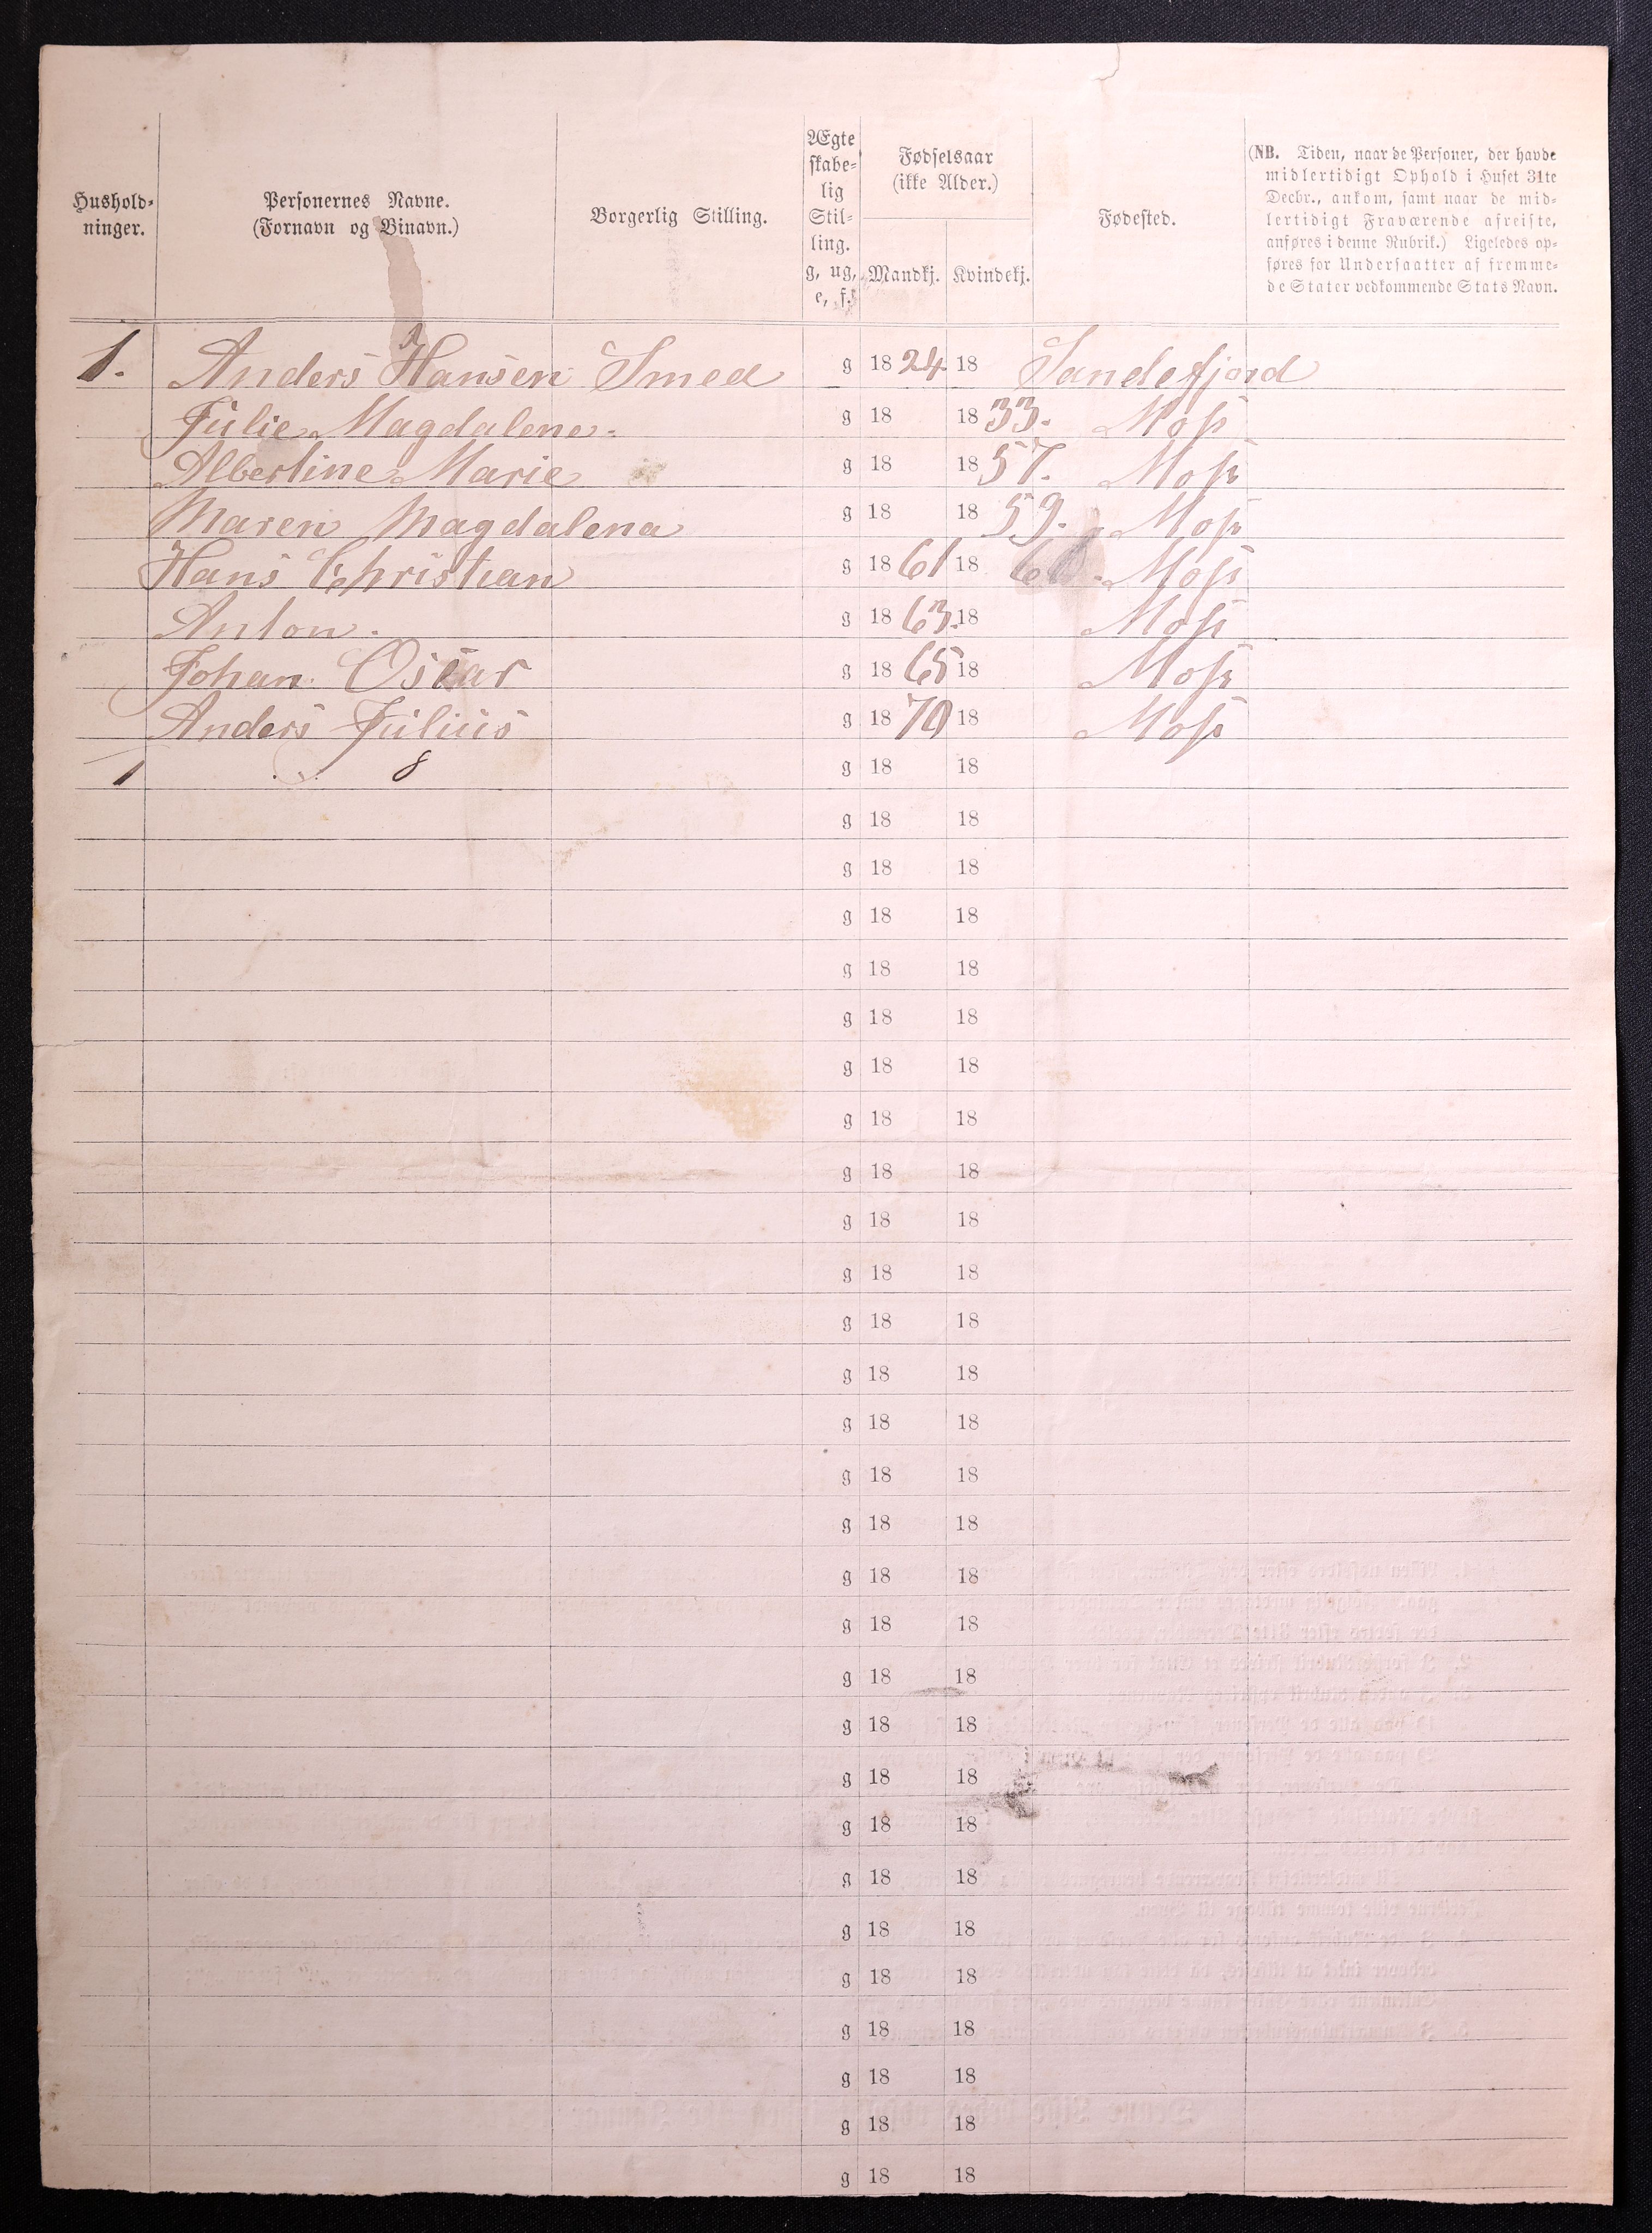 Hushold-
ninger.
Personernes Navne.
(Fornavn og Binavn.)
Borgerlig Stilling.
Ægte
skabe-
lig
Stil-
ling.
g, ug,
e, f.
Fødselsaar
(ikke Alder.)
Mandkj.
Kvindekj.
Fødested.
(NB. Tiden, naar de Personer, der havde
midlertidigt Ophold i Huset 31te
Decbr., ankom, samt naar de mid-
lertidigt Fraværende afreiste,
anføres i denne Rubrik.) Ligeledes op-
føres for Undersaatter af fremme-
de Stater vedkommende Stats Navn.
1. Anders Hansen Smed g 1824. 18 Sandefjord
Julie Magdalene. g 18 1833. Moss
Albertine Marie g 18 1857. Moss
Maren Magdalena g 18 1859. Moss
Hans Christian g 1861 18 Moss
Anton. g 1863. 18 Moss
Johan Oscar g 1865 18 Moss
Anders Julius g 1870 18 Moss
1 8 g 18 18
g 18 18
g 18 18
g 18 18
g 18 18
g 18 18
g 18 18
g 18 18
g 18 18
g 18 18
g 18 18
g 18 18
g 18 18
g 18 18
g 18 18
g 18 18
g 18 18
g 18 18
g 18 18
g 18 18
g 18 18
g 18 18
g 18 18
g 18 18
g 18 18
g 18 18
g 18 18
g 18 18
g 18 18